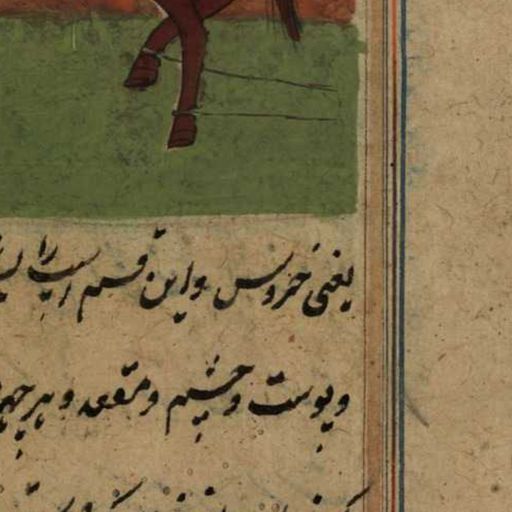 یعنی خروس و این قسم اسب را
و پوست و چشم و مقعد و هر چه